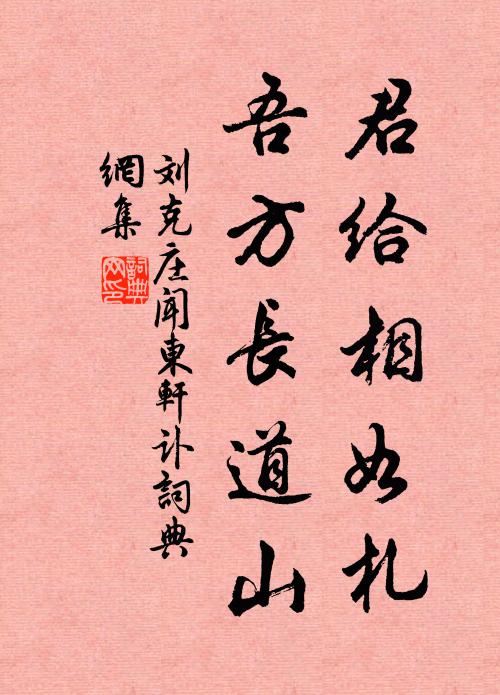 君给相如札
吾方長道山
刘克庄闻東軒讣詞典
網集
詞典網印